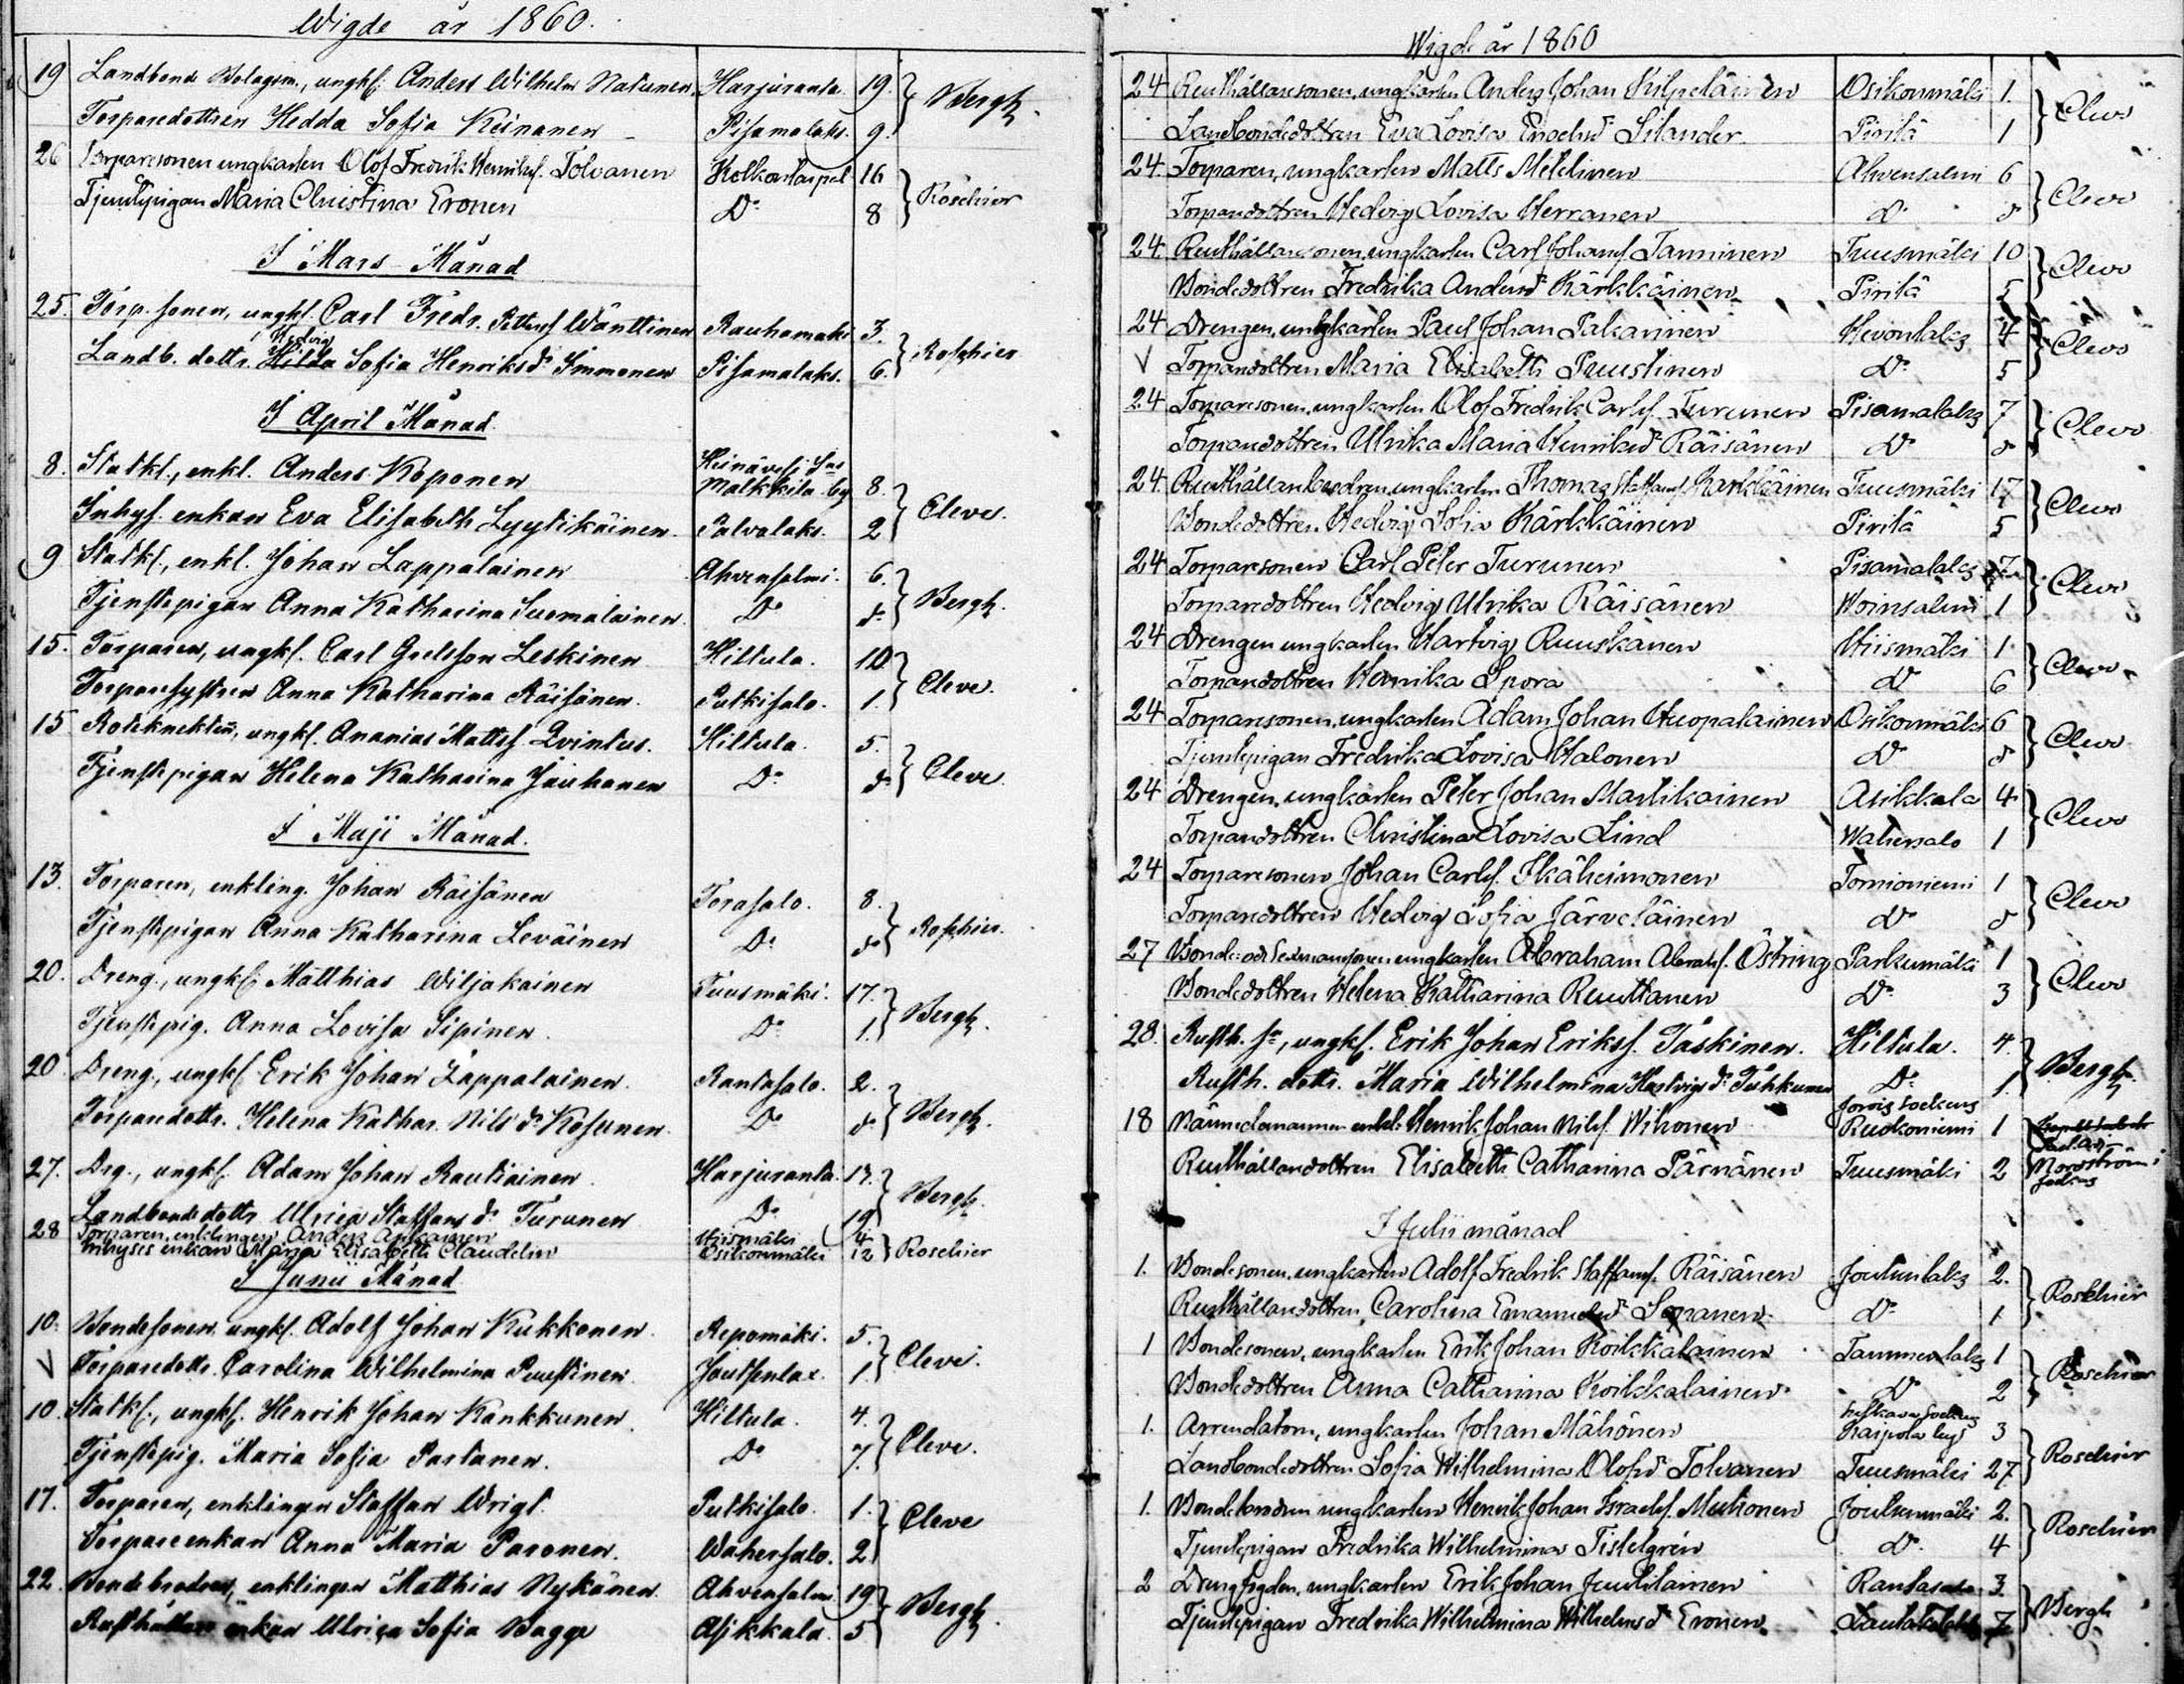 Wigde år 1860.
19 Landbond Bolagsm., ungkf. Anders Wilhelm Natunen Harjuranta 19. Bergh.
Torparedottren Hedda Sofia Keinanen Pisamalaks. 9.
26 Torparesonen ungkarlen Olof Fredrik Henriksf. Tolvanen Kolkontaipal 16 Roschier
Tjenstepigan Maria Christina Eronen Do 8
I Mars Månad
25. Torp. sonen, ungkf. Carl Fredr. Pettersf Wänttinen Rauhamäki 3. Roschier
Hedvig
Landb. dottr. Hilda Sofia Henriksdr Immonen Pisamalaks. 6.
I April Månad.
8. Statkf., enkl. Anders Koponen Heinävesi Sns Malkkila by 8. Cleve.
Inhys. enkan Eva Elisabeth Lyytikäinen. Palvalaks. 2
9 Statkf., enkl. Johan Lappalainen Ahvensalmi. 6. Bergh.
Tjenstepigan Anna Katharina Suomalainen. Do do
15. Torparen, ungkf. Carl Gretsson Leskinen Hiltula. 10 Cleve.
Torparesystren Anna Katharina Räisänen. Putkisalo. 1.
15 Roteknekten, ungkf. Ananias Mattsf Qvintus. Hiltula. 5. Cleve.
Tjenstepigan Helena Katharina Jauhonen Do do
I Maji Månad.
13. Torparen, enkling. Johan Räisänen Torasalo. 8. Roschier.
Tjenstepigan Anna Katharina Leväinen Do do
20. Dreng., ungkf. Matthias Wiljakainen Tuusmäki. 17. Bergh.
Tjenstepig. Anna Lovisa Sipinen. Do 1.
20 Dreng., ungkf Erik Johan Lappalainen. Rantasalo. 2. Bergh.
Torparedottr. Helena Kathar. Nilsdr Kosunen. Do do
27. Drg., ungkf. Adam Johan Rautiainen. Harjuranta. 17. Bergh.
Landbondedottr Ulrica Staffansdr Turunen Do 19
28 Torparen, enklingen Anders Hiismäki 4 Roschier
Inhyses enkan Maria Elisabeth Claudelin Osikonmäki 12
I Junii Månad
10. Bondesonen, ungkf. Adolf Johan Kukkonen. Repomäki. 5. Cleve.
V Torparedottr. Carolina Wilhelmina Puustinen. Joutsenlax. 1.
10. Statkf., ungkf. Henrik Johan Kankkunen. Hiltula. 4. Cleve.
Tjenstepig. Maria Sofia Partanen. Do 7.
17. Torparen, enklingen Staffan Wrigt. Putkisalo. 1. Cleve
Torpareenkan Anna Maria Paronen. Wahersalo. 2.
22. Bondebrodren, enklingen Matthias Nykänen. Ahvensalmi 19. Bergh.
Rusthållare enkan Ulrica Sofia Bagge Asikkala. 5
Wigde år 1860
24 Rusthållaresonen, ungkarlen Anders Johan Kilpeläinen Osikonmäki 1. Cleve
Landbondedottren Eva Lovisa Enoksdr Silander Pirilä 1
24. Torparen, ungkarlen Matts Meklinen Ahvensalmi 6 Cleve
Torparedottren Hedvig Lovisa Herranen do do
24. Rusthållaresonen, ungkarlen Carl Johansf Tanninen Tuusmäki 10 Cleve
Bondedottren Fredrika Andersdr Kärkkäinen Pirilä 5
24 Drengen, ungkarlen Paul Johan Pakarinen Hevonlaks 4 Cleve
V Torparedottren Maria Elisabeth Puustinen Do 5
24 Torparesonen, ungkarlen Olof Fredrik Carlsf. Turunen Pisamalaks 7 Cleve
Torparedottren Ulrika Maria Henriksdr Räisänen Do do
24. Rusthållarebrodren, ungkarlen Thomas Staffansf. Kärkkäinen Tuusmäki 17 Cleve
Bondedottren Hedvig Sofia Kärkkäinen Pirilä 5
24 Torparesonen Carl Peter Turunen Pisamalaks 7 Cleve
Torparedottren Hedvig Ulrika Räisänen Woinsalmi 1
24 Drengen ungkarlen Hartvig Ruuskanen Hiismäki 1 Cleve
Torparedottren Henrika Spora Do 6
24 Torparesonen, ungkarlen Adam Johan Huopalainen Osikonmäki 6 Cleve
Tjenstepigan Fredrika Lovisa Halonen Do do
24 Drengen, ungkarlen Peter Johan Martikainen Asikkala 4 Cleve
Torparedottren Christina Lovisa Lind Wahersalo 1
24 Torparesonen Johan Carlsf. Ikäheimonen Tornioniemi 1 Cleve
Torparedottren Hedvig Sofia Järveläinen Do do
27 Bonde och Sexmansonen ungkarlen Abraham Abrahsf. Östring Parkumäki 1 Cleve
Bondedottren Helena Katharina Ruuttanen Do 3
28. Rusth. sn, ungkf. Erik Johan Eriksf. Taskinen. Hiltula. 4. Bergh.
Rusth. dottr. Maria Wilhelmina Hartvigsdr Tuhkunen Do 1.
18 Nämndemannen enkl. Henrik Johan Nilsf. Wihonen Jorois Sockens Ruokoniemi 1
Rusthållaredottren Elisabeth Catharina Pärnänen Tuusmäki 2 Nordström
I Julii månad
1. Bondesonen, ungkarlen Adolf Fredrik Staffansf. Räisänen Joutsenlaks 2. Roschier
Rusthållaredottren, Carolina Emanuelsdr Soranen Do 1
1 Bondesonen, ungkarlen Erik Johan Koikkalainen Tammenlaks 1 Roschier
Bondedottren Anna Catharina Koikkalainen Do 2
1. Arrendatorn, ungkarlen Johan Mähönen Sockens Karpola by 3 Roschier
Landbondedottren Sofia Wilhelmina Olofsdr Tolvanen Tuusmäki 27
1. Bondebrodren ungkarlen Henrik Johan Israelsf. Muhonen Joutsenmäki 2. Roschier
Tjenstepigan Fredrika Wilhelmina Tistelgrén Do 4
2 Drengsyden, ungkarlen Erik Johan Juutilainen Rantasalo 3. Bergh
Tjenstepigan Fredrika Wilhelmina Wilhelmsdr Eronen 7